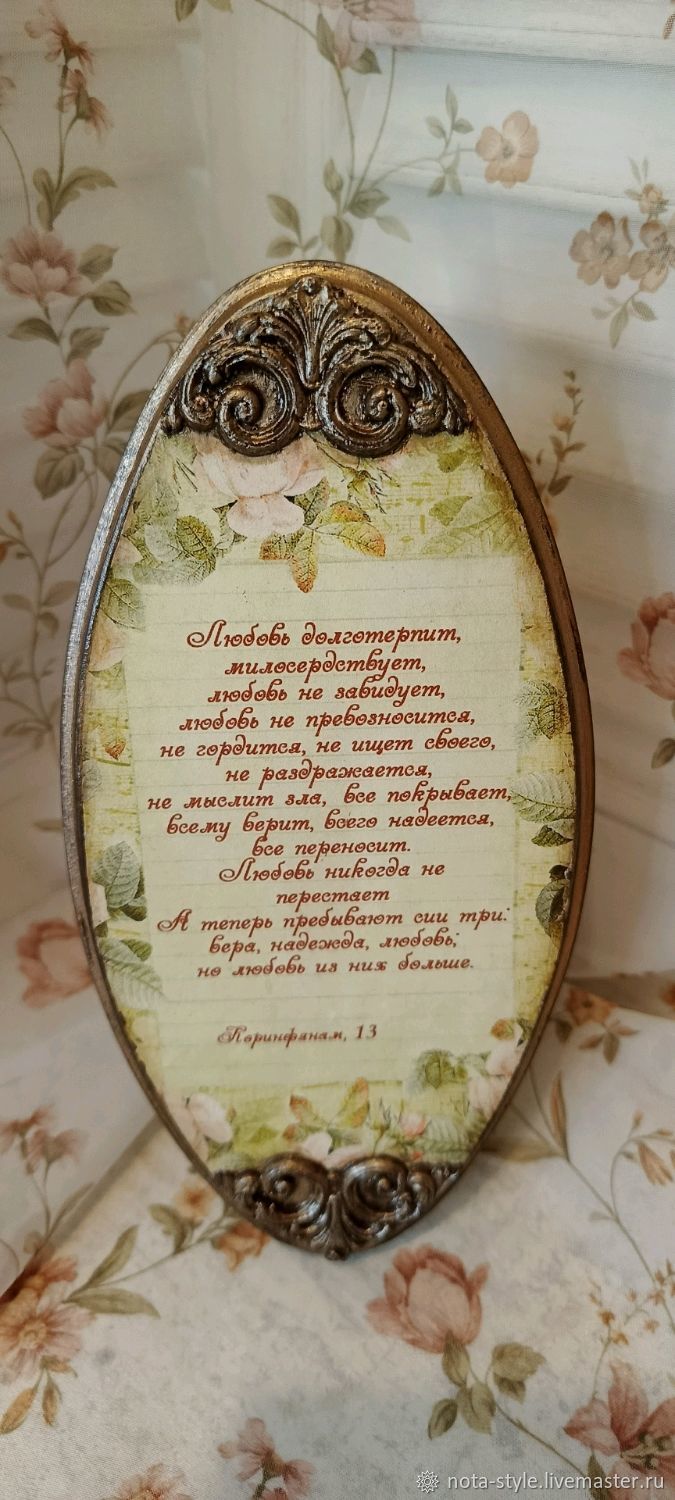 Любовь долготерпит,
милосердствует,
любовь не завидует,
любовь не превозносится,
не гордится, не ищет своего,
не раздражается,
не мыслит зла, все покрывает,
всему верит, всего надеется,
все переносит.
Любовь никогда не
перестает
А теперь пребывают сии три:
вера, надежда, любовь;
но любовь из них больше.
Коринфянам, 13
nota-style.livemaster.ru